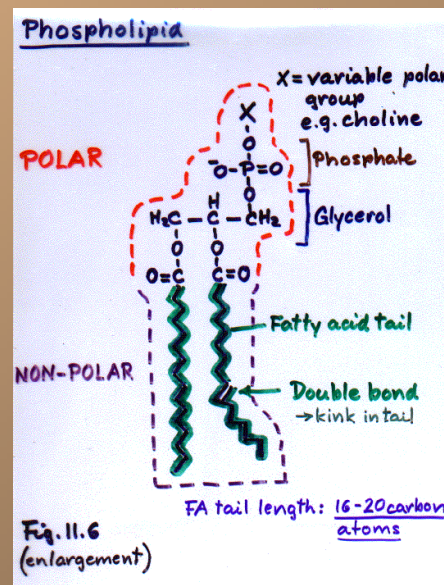 Phospholipid
X = variable polar
group
e.g. choline
POLAR
X
O
⁻O-P=O
Phosphate
O
H
H₂C - C - CH₂
Glycerol
O O
O=C C=O
Fatty acid tail
NON-POLAR
Double bond
→kink in tail
FA tail length: 16-20 carbon
atoms
Fig. 11.6
(enlargement)